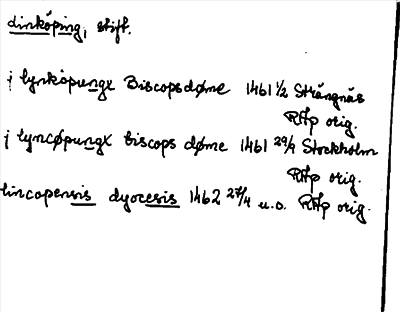 Linköping, stift.
j lynkøpungx Biscopsdøme 1461 1/2 Strängnäs
RAp orig.
j lyncøpungx biscops døme 1461 29/9 Stockholm
RAp orig.
lincopensis dyocesis 1462 27/4 u.o. RAp orig.